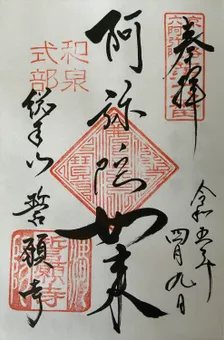 奉拝
令和五年
四月九日
阿弥陀如来
和泉
式部
総本山
誓願寺